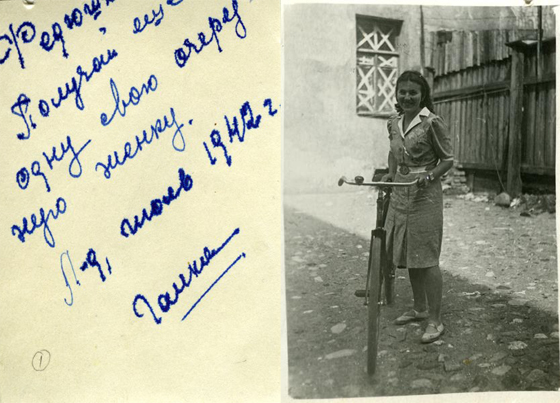 Федюшка
Получай еще
одну свою очеред-
ную женку.
Л-д, июль 1942 г.
Галка
①